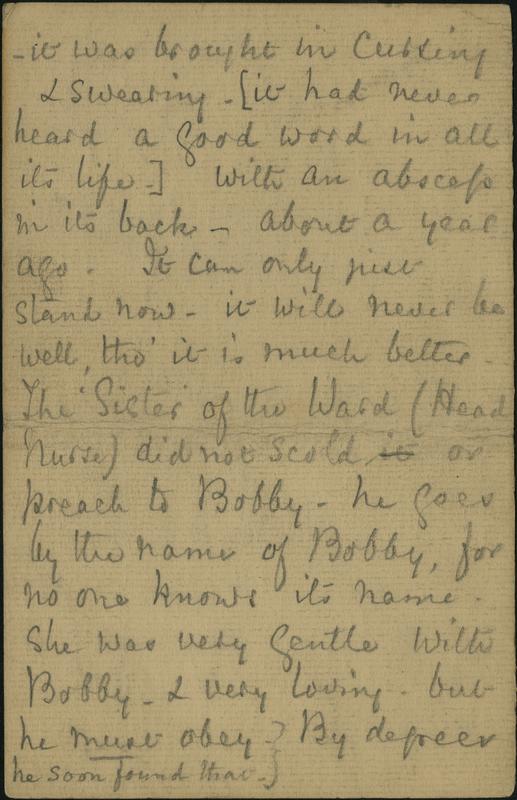 - it was brought in Cursing
& Swearing - [it had never
heard a good word in all
its life -] With an abscess
in its back - about a year
ago. It can only just
stand now - it will never be
well, tho' it is much better -
The 'Sister' of the Ward (Head
Nurse) did not scold it or
preach to Bobby - he goes
by the name of Bobby, for
no one knows its name.
She was very gentle with
Bobby - & very loving - but
he must obey -} By degrees
he soon found that -}